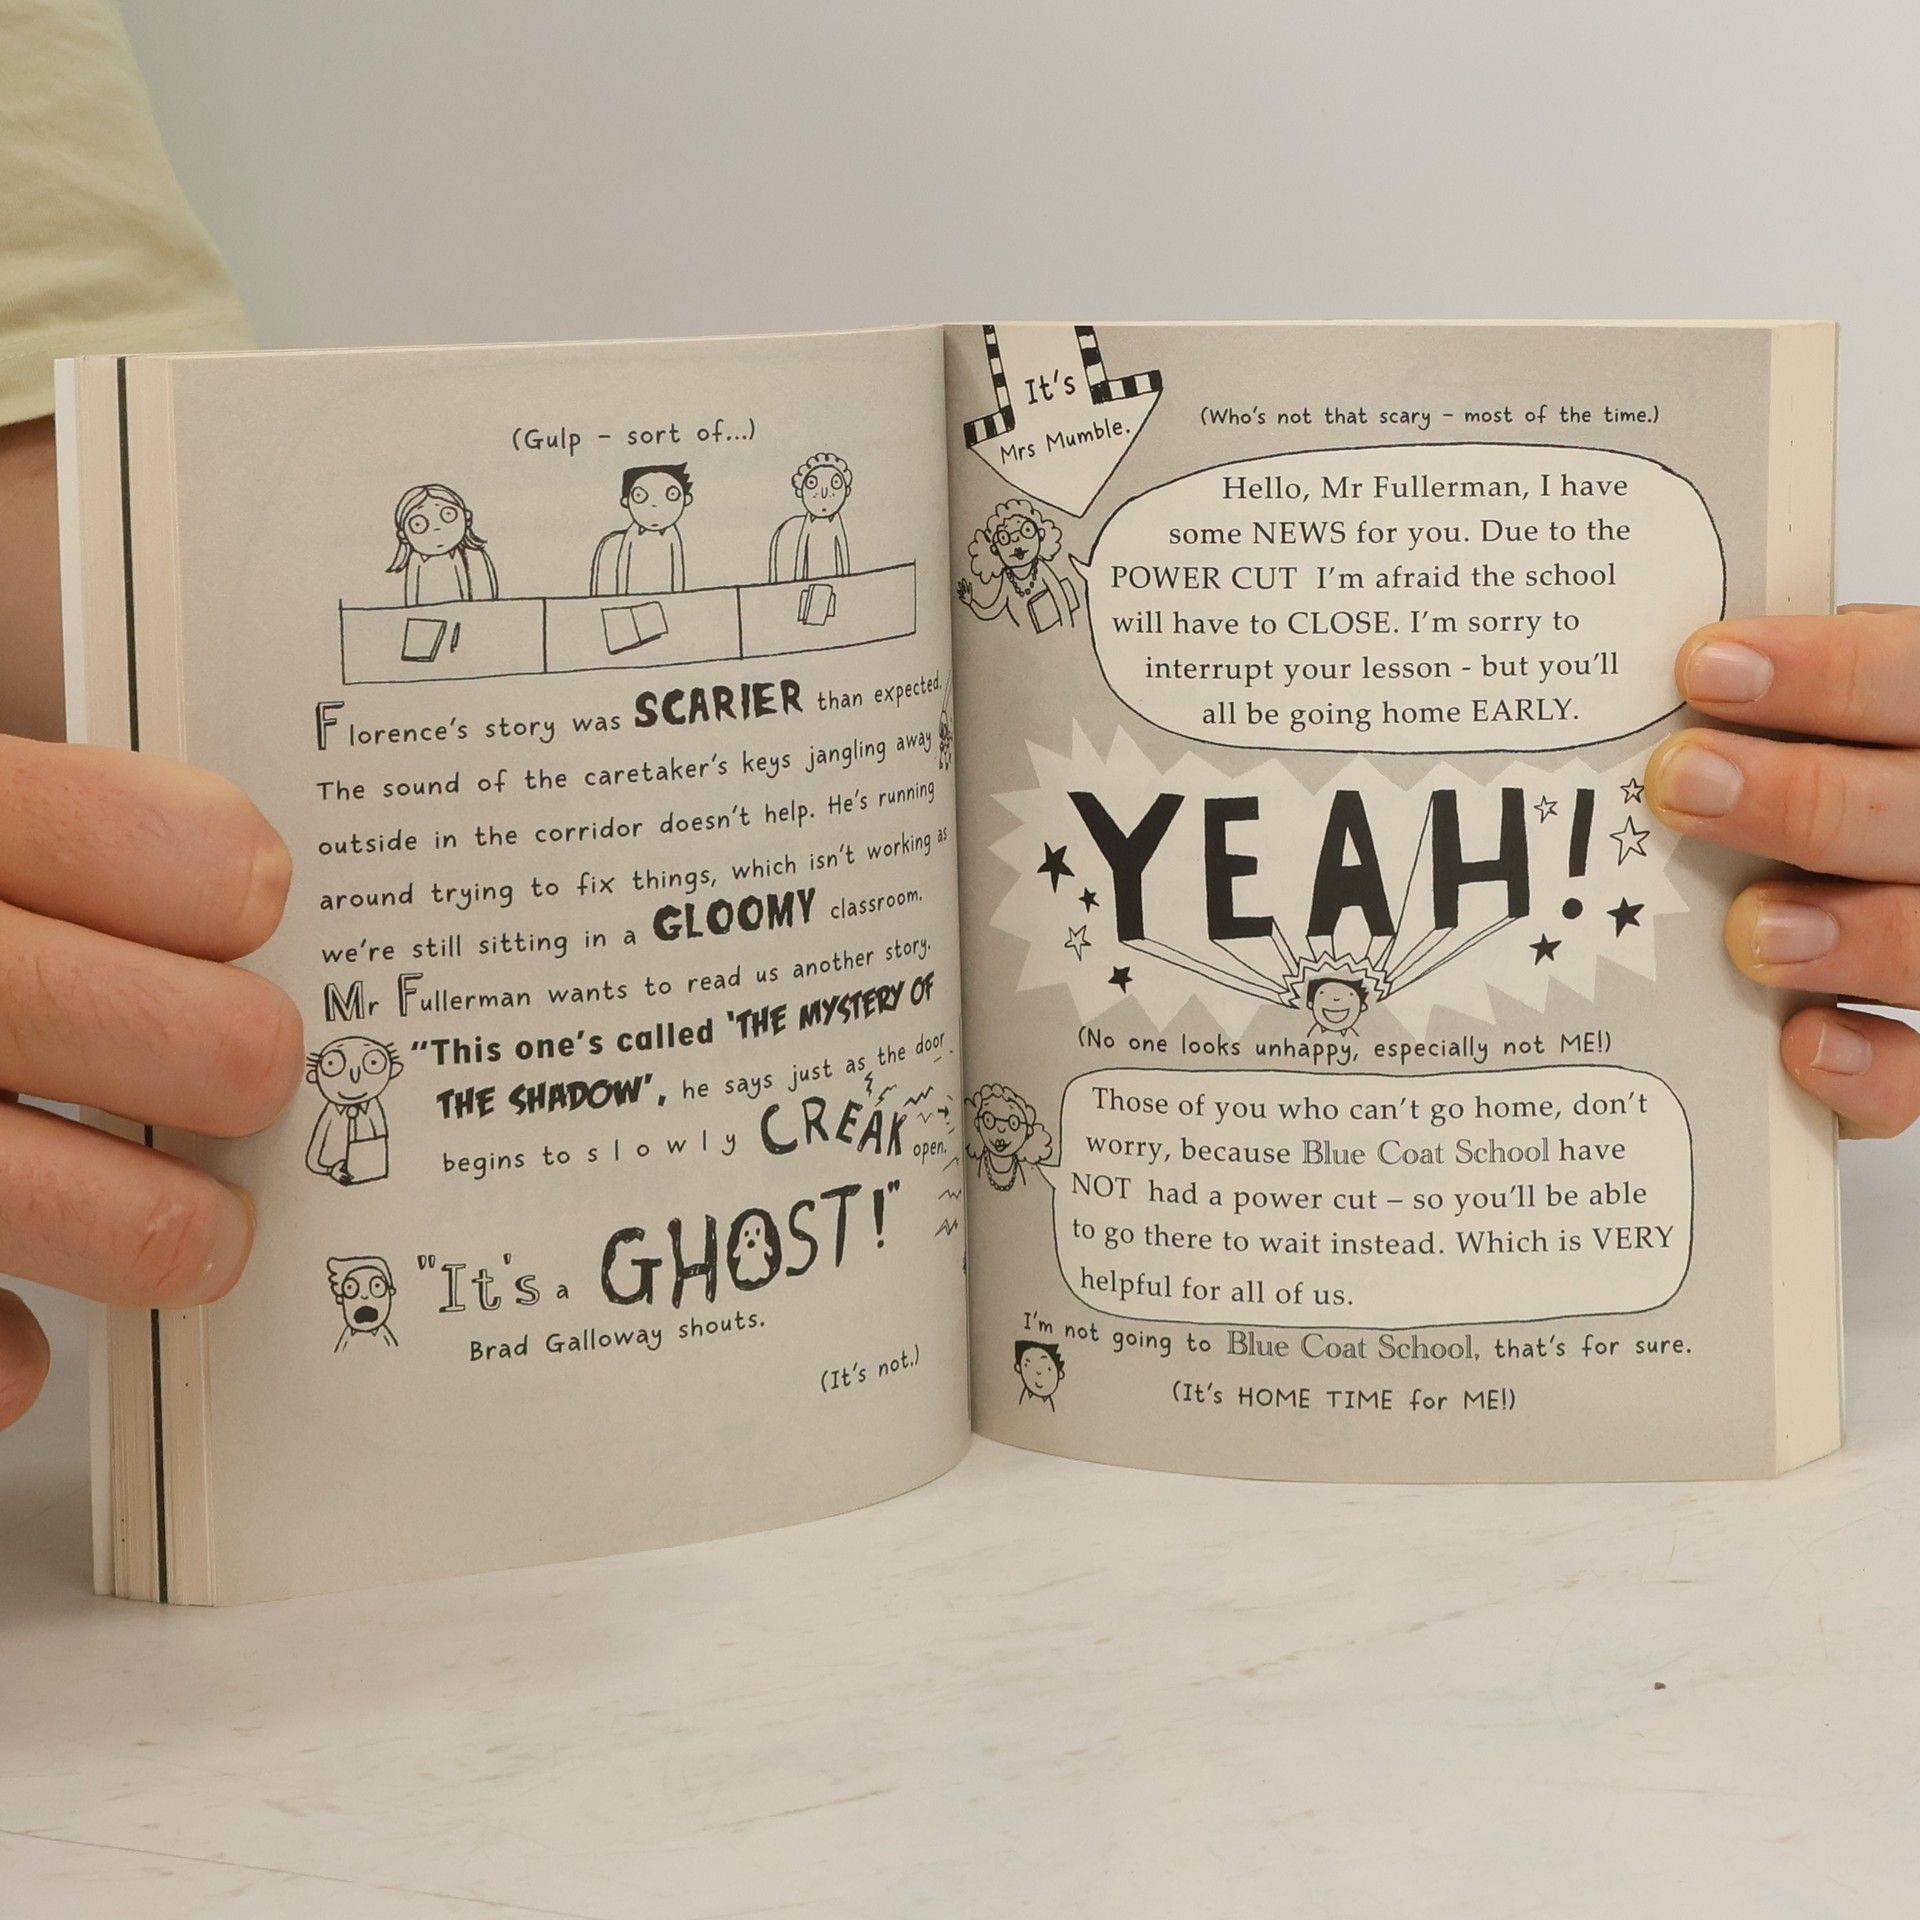 (Gulp - sort of...)
Florence's story was SCARIER than expected.
The sound of the caretaker's keys jangling away
outside in the corridor doesn't help. He's running
around trying to fix things, which isn't working as
we're still sitting in a GLOOMY classroom.
Mr Fullerman wants to read us another story.
"This one's called 'THE MYSTERY OF
THE SHADOW', he says just as the door
begins to slowly CREAK open.
"It's a GHOST!"
Brad Galloway shouts.
(It's not.)
It's
Mrs Mumble.
(Who's not that scary - most of the time.)
Hello, Mr Fullerman, I have
some NEWS for you. Due to the
POWER CUT I'm afraid the school
will have to CLOSE. I'm sorry to
interrupt your lesson - but you'll
all be going home EARLY.
YEAH!
(No one looks unhappy, especially not ME!)
Those of you who can't go home, don't
worry, because Blue Coat School have
NOT had a power cut – so you'll be able
to go there to wait instead. Which is VERY
helpful for all of us.
I'm not going to Blue Coat School, that's for sure.
(It's HOME TIME for ME!)